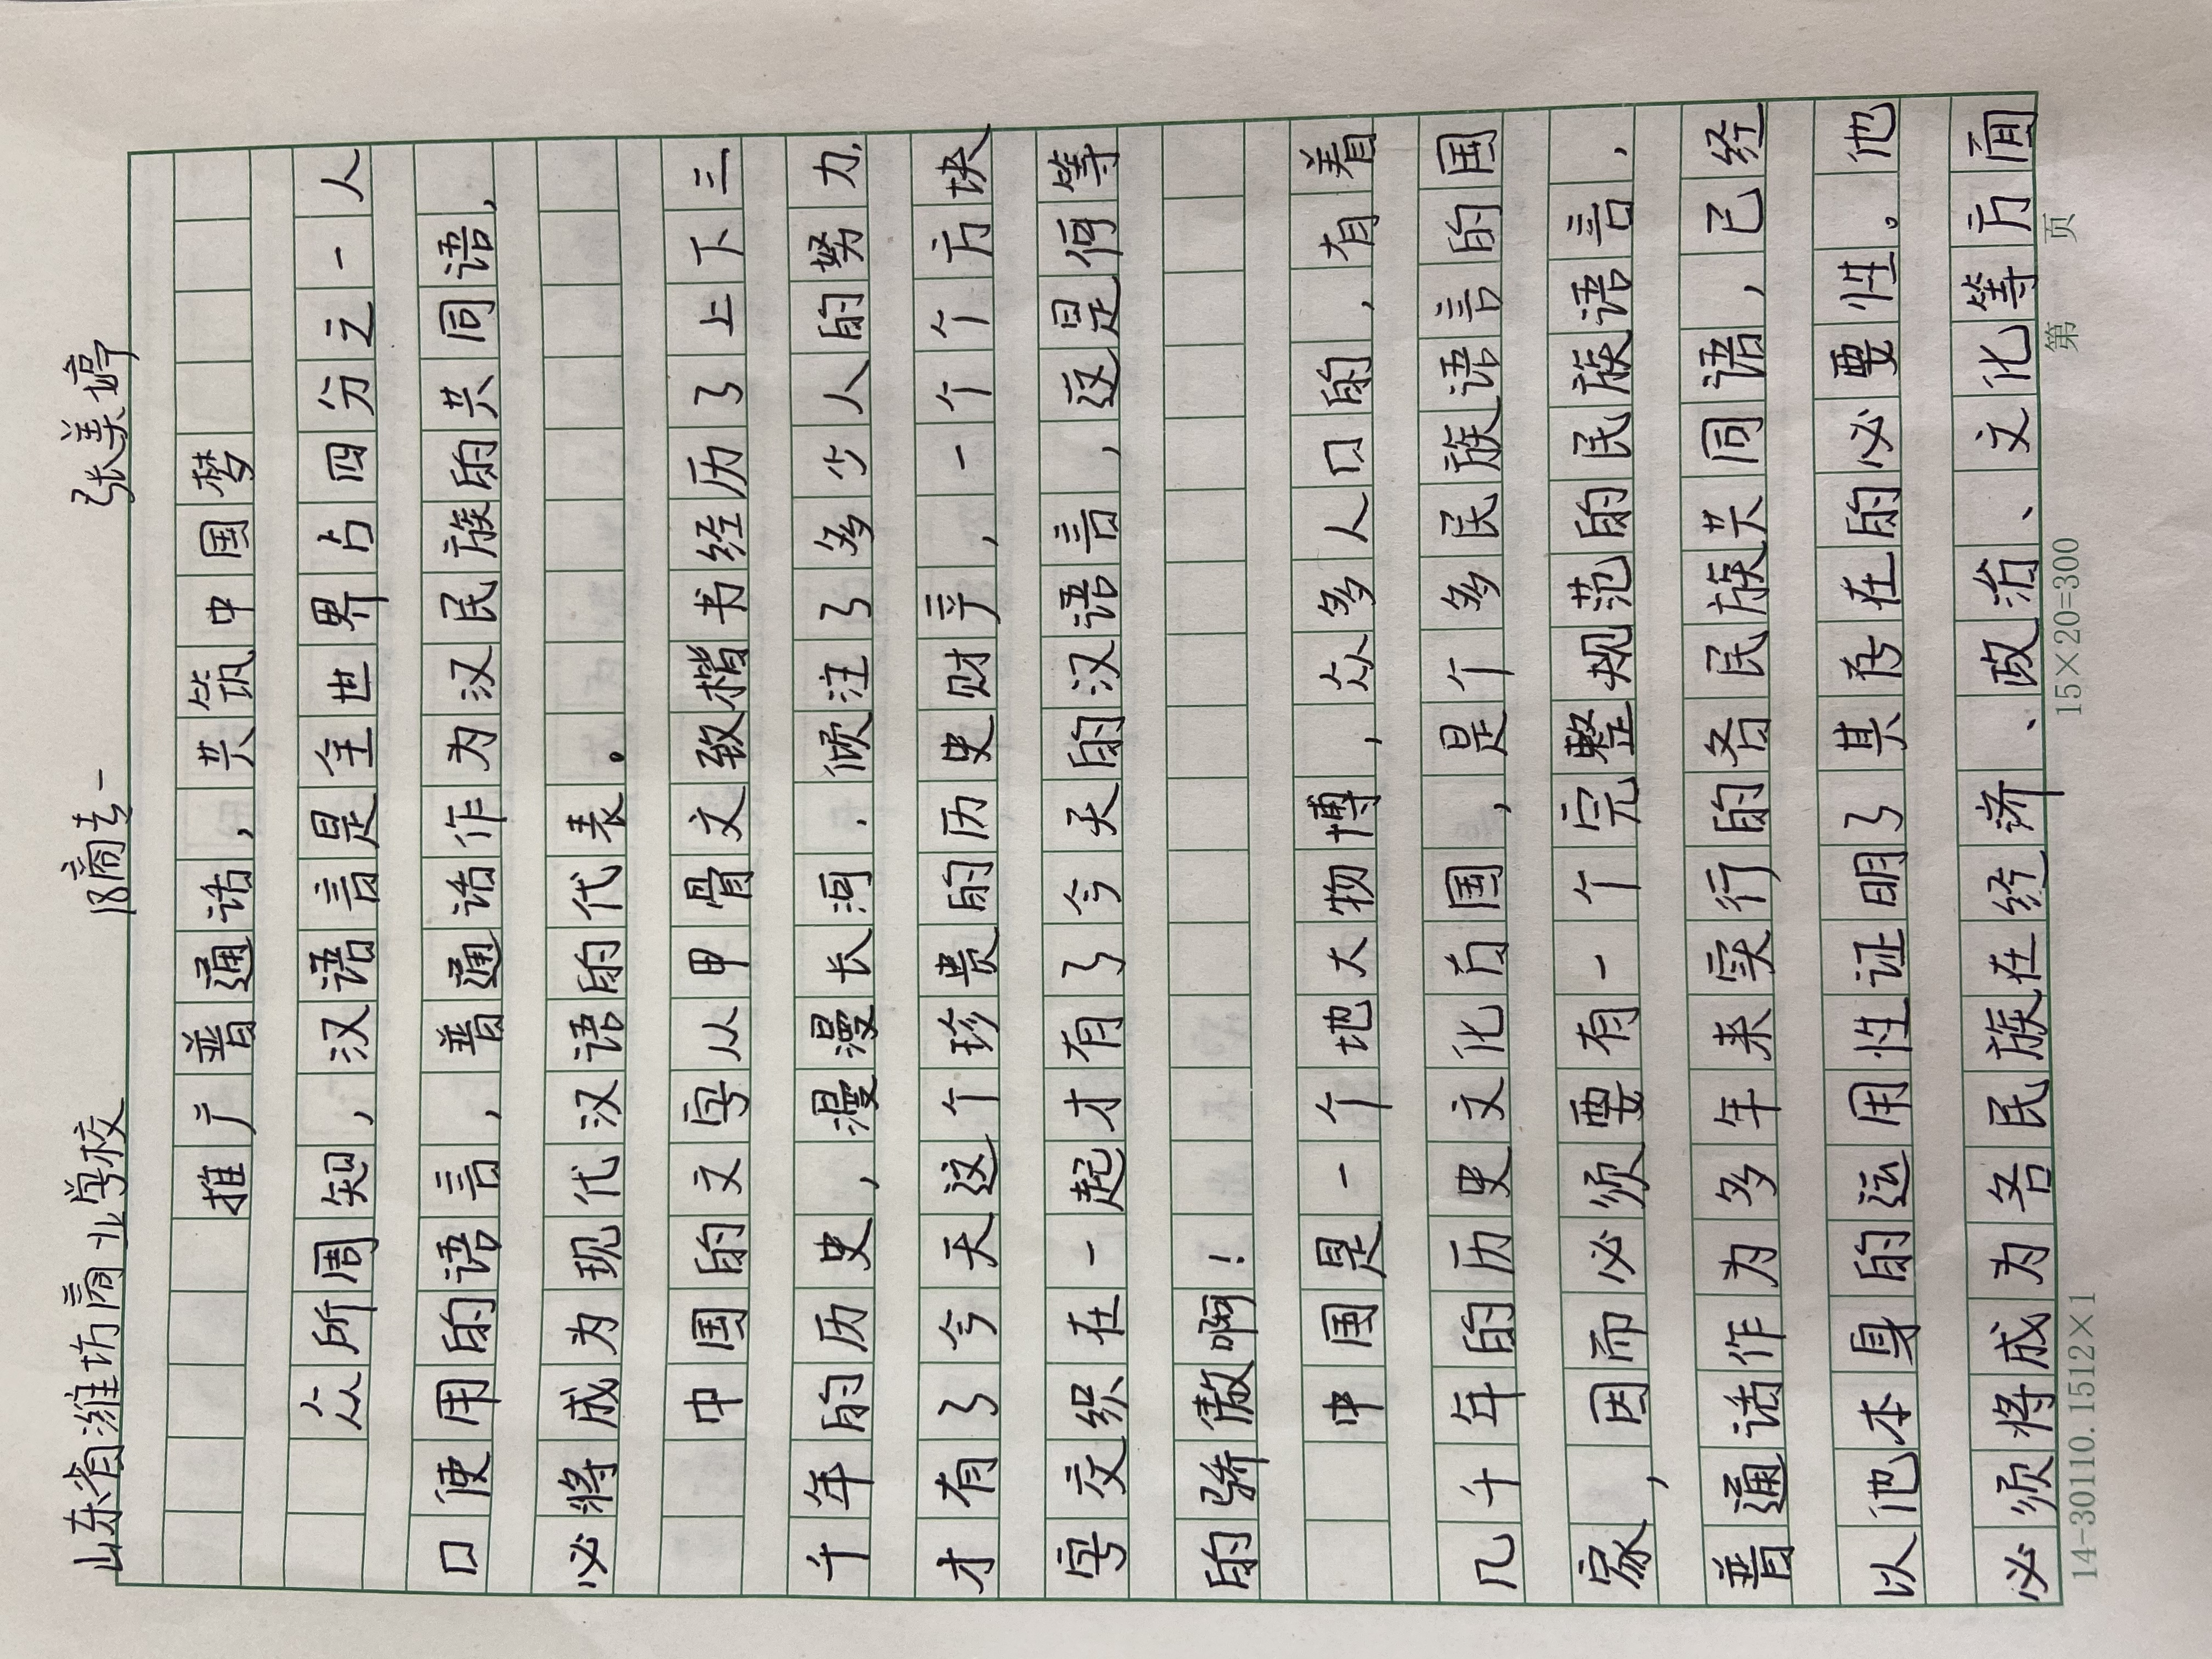 山东省潍坊商业学校 18商专一 张美婷
推广普通话，共筑中国梦
众所周知，汉语言是全世界占四分之一人
口使用的语言，普通话作为汉民族的共同语，
必将成为现代汉语的代表。
中国的文字从甲骨文致楷书经历了上下三
千年的历史，漫漫长河．倾注了多少人的努力，
才有了今天这个珍贵的历史财产，一个个方块
字交织在一起才有了今天的汉语言，这是何等
的骄傲啊！
中国是一个地大物博，众多人口的，有着
几千年的历史文化古国，是个多民族语言的国
家，因而必须要有一个完整规范的民族语言，
普通话作为多年来实行的各民族共同语，已经
以他本身的运用性证明了其存在的必要性。他
必须将成为各民族在经济、政治、文化等方面
14-30110.1512×1 15×20=300 第 页